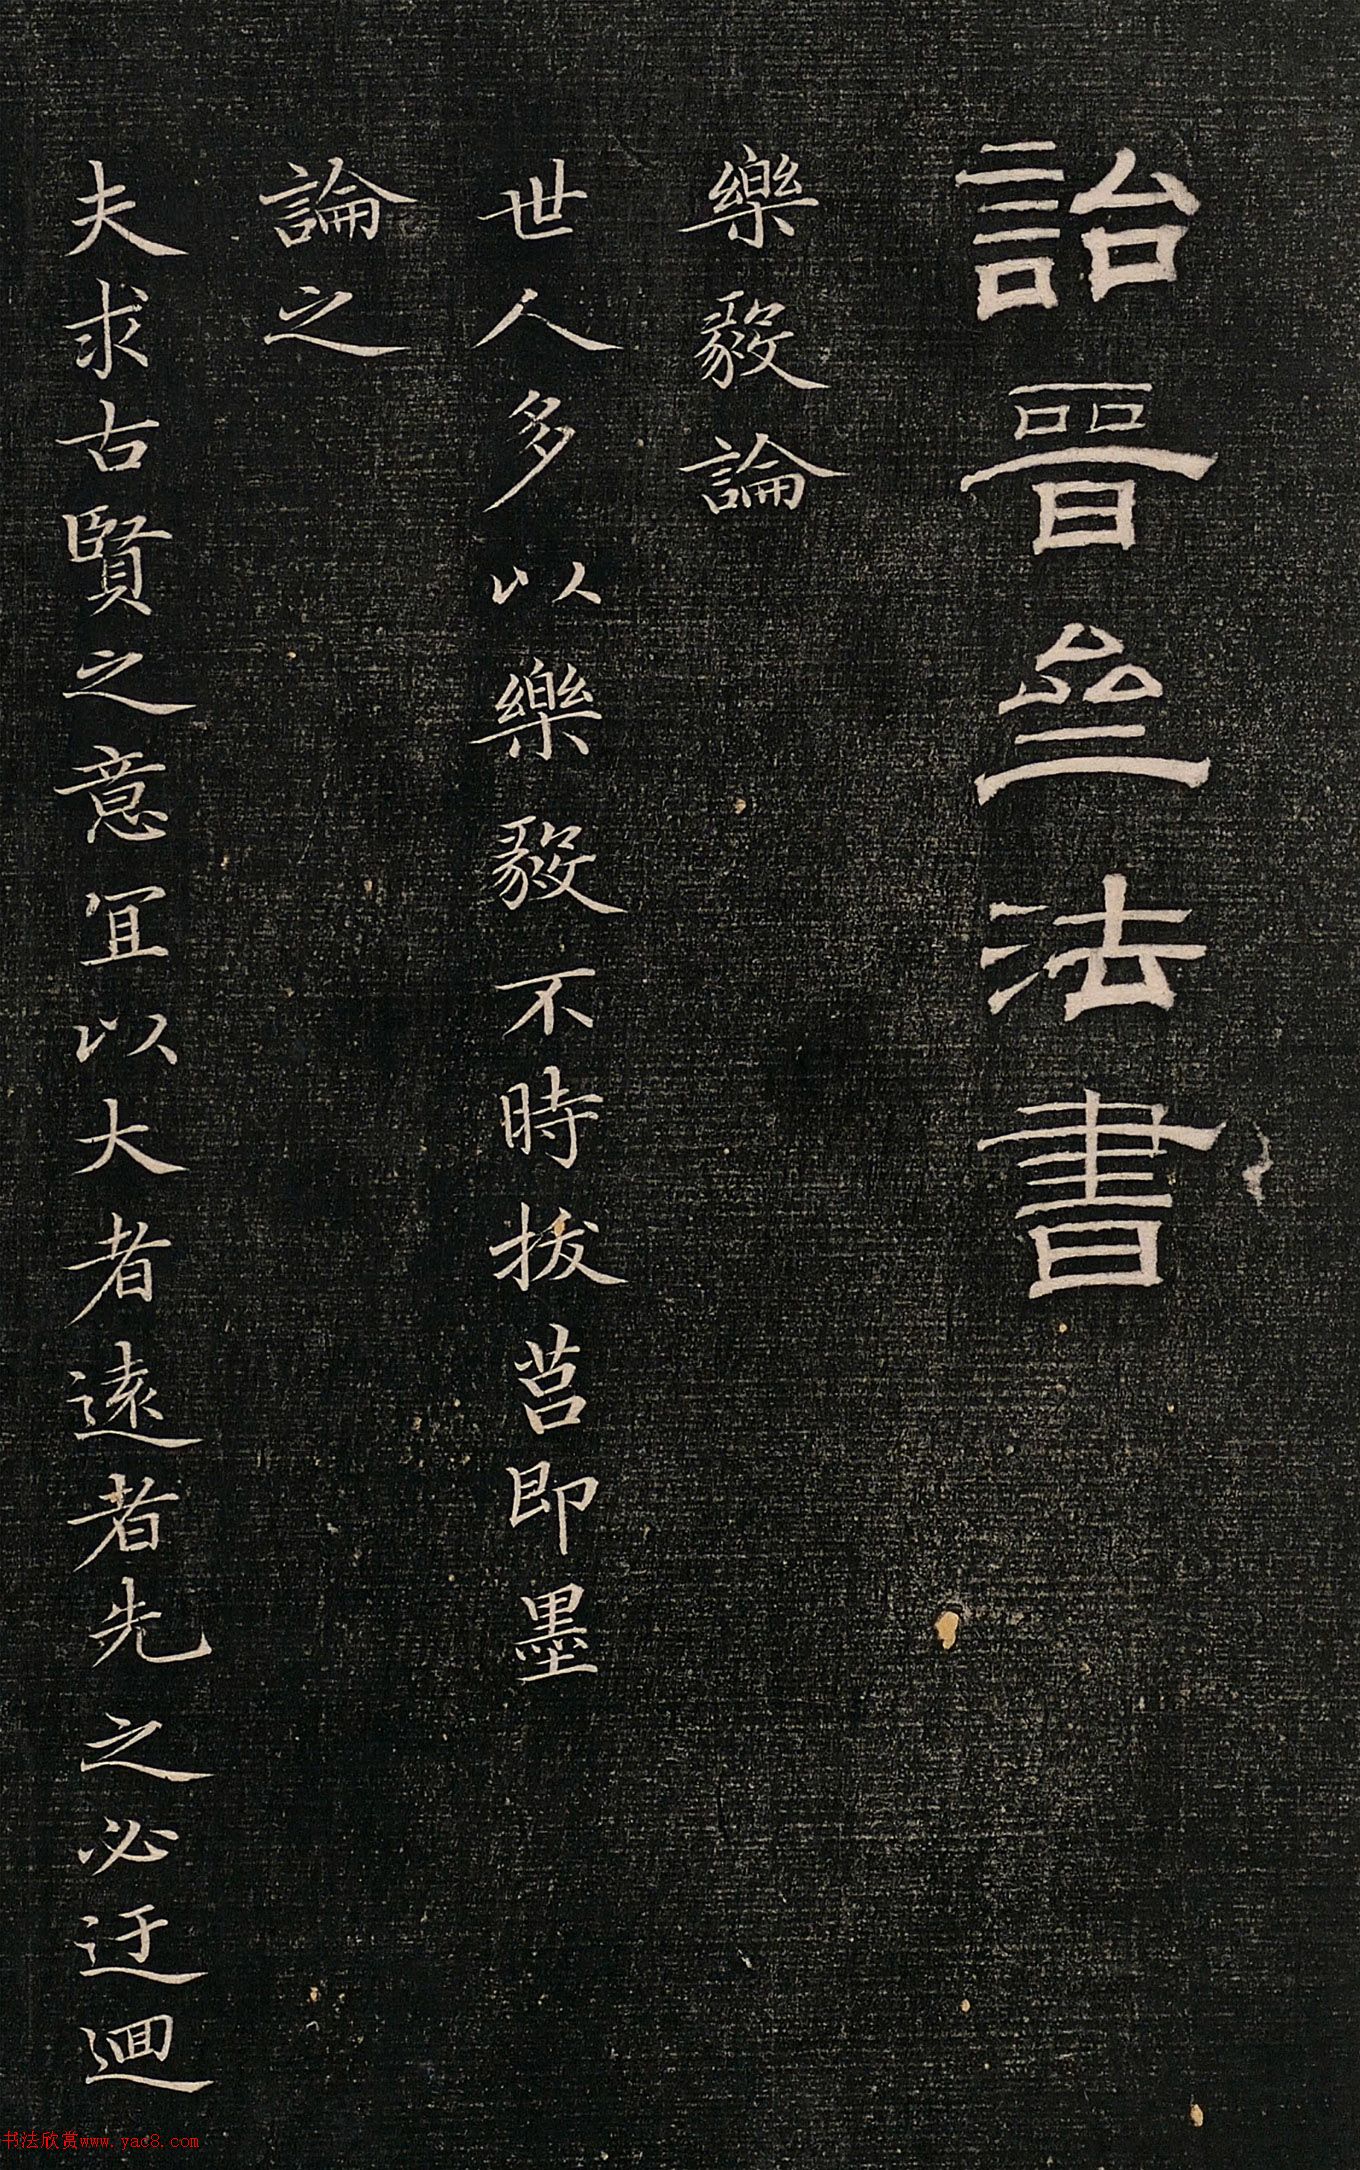 詒晉叁法書
樂毅論
世人多以樂毅不時拔莒即墨
論之
夫求古賢之意宜以大者遠者先之必迂迴
书法欣赏www.yac8.com